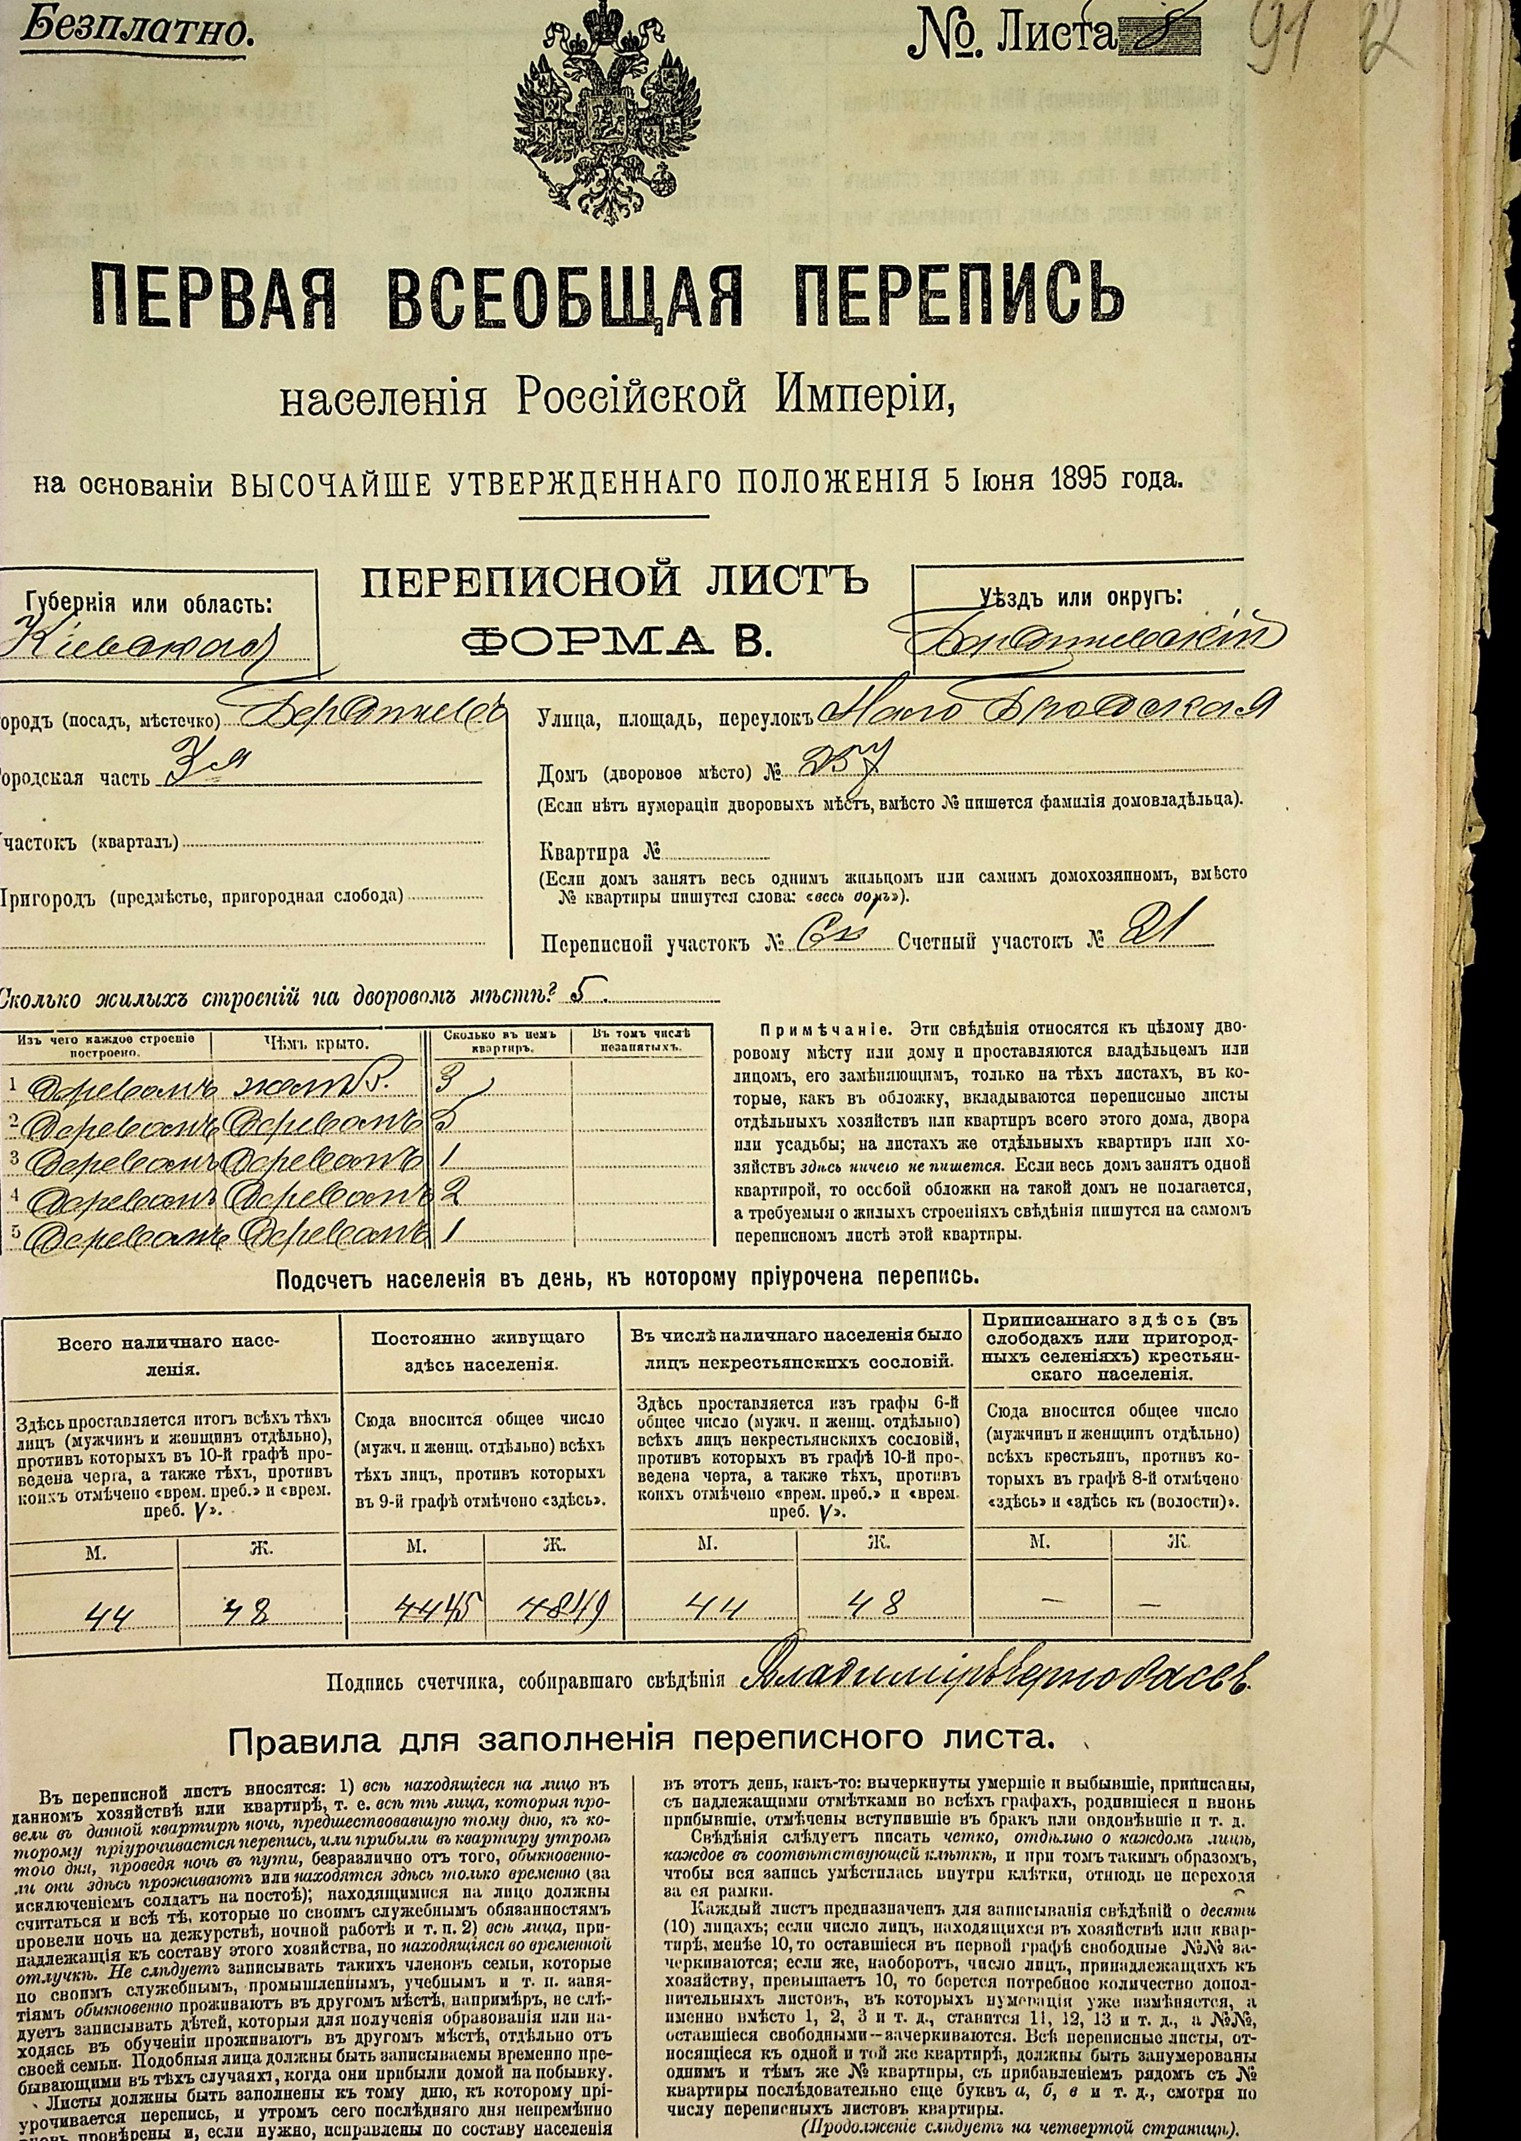 Безплатно.
№. Листа 8
91 12
ПЕРВАЯ ВСЕОБЩАЯ ПЕРЕПИСЬ
населенія Россійской Имперіи,
на основаніи ВЫСОЧАЙШЕ УТВЕРЖДЕННАГО ПОЛОЖЕНІЯ 5 Іюня 1895 года.
ПЕРЕПИСНОЙ ЛИСТЪ
ФОРМА В.
Губернія или область:
Кіевская
Уѣздъ или округъ:
Бердичевскій
ородъ (посадъ, мѣстечко) Бердичевъ
ородская часть 3я
частокъ (кварталъ)
Пригородъ (предмѣстье, пригородная слобода)
Улица, площадь, переулокъ Мало Бродская
Домъ (дворовое мѣсто) №
(Если нѣтъ нумераціи дворовыхъ мѣстъ, вмѣсто № пишется фамилія домовладѣльца).
Квартира №
(Если домъ занятъ весь однимъ жильцомъ или самимъ домохозяиномъ, вмѣсто
№ квартиры пишутся слова: «весь домъ»).
Переписной участокъ № Счетный участокъ № 21
Сколько жилыхъ строеній на дворовомъ мѣстѣ? 5.
Изъ чего каждое строеніе построено. Чѣмъ крыто. Сколько въ немъ квартиръ. Въ томъ числѣ незанятыхъ.
1 Деревянъ 3
2 Деревянъ Деревянъ 5
3 Деревянъ Деревянъ 1
4 Деревянъ Деревянъ 2
5 Деревянъ Деревянъ 1
Примѣчаніе. Эти свѣдѣнія относятся къ цѣлому дво-
ровому мѣсту или дому и проставляются владѣльцемъ или
лицомъ, его замѣняющимъ, только на тѣхъ листахъ, въ ко-
торые, какъ въ обложку, вкладываются переписные листы
отдѣльныхъ хозяйствъ или квартиръ всего этого дома, двора
или усадьбы; на листахъ же отдѣльныхъ квартиръ или хо-
зяйствъ здѣсь ничего не пишется. Если весь домъ занятъ одной
квартирой, то особой обложки на такой домъ не полагается,
а требуемыя о жилыхъ строеніяхъ свѣдѣнія пишутся на самомъ
переписномъ листѣ этой квартиры.
Подсчетъ населенія въ день, къ которому пріурочена перепись.
Всего наличнаго насе-
ленія.
Здѣсь проставляется итогъ всѣхъ тѣхъ
лицъ (мужчинъ и женщинъ отдѣльно),
противъ которыхъ въ 10-й графѣ про-
ведена черта, а также тѣхъ, противъ
коихъ отмѣчено «врем. преб.» и «врем.
преб. V».
М. Ж.
44 48
Постоянно живущаго
здѣсь населенія.
Сюда вносится общее число
(мужч. и женщ. отдѣльно) всѣхъ
тѣхъ лицъ, противъ которыхъ
въ 9-й графѣ отмѣчено «здѣсь».
М. Ж.
4445 4849
Въ числѣ наличнаго населенія было
лицъ некрестьянскихъ сословій.
Здѣсь проставляется изъ графы 6-й
общее число (мужч. и женщ. отдѣльно)
всѣхъ лицъ некрестьянскихъ сословій,
противъ которыхъ въ графѣ 10-й про-
ведена черта, а также тѣхъ, противъ
коихъ отмѣчено «врем. преб.» и «врем.
преб. V».
М. Ж.
44 48
Приписаннаго здѣсь (въ
слободахъ или пригород-
ныхъ селеніяхъ) крестьян-
скаго населенія.
Сюда вносится общее число
(мужчинъ и женщинъ отдѣльно)
всѣхъ крестьянъ, противъ ко-
торыхъ въ графѣ 8-й отмѣчено
«здѣсь» и «здѣсь къ (волости)».
М. Ж.
— —
Подпись счетчика, собиравшаго свѣдѣнія Владиміръ
Правила для заполненія переписного листа.
Въ переписной листъ вносятся: 1) всѣ находящіеся на лицо въ
данномъ хозяйствѣ или квартирѣ, т. е. всѣ тѣ лица, которыя про-
вели въ данной квартирѣ ночь, предшествовавшую тому дню, къ ко-
торому пріурочивается перепись, или прибыли въ квартиру утромъ
того дня, проведя ночь въ пути, безразлично отъ того, обыкновенно-
ли они здѣсь проживаютъ или находятся здѣсь только временно (за
исключеніемъ солдатъ на постоѣ); находящимися на лицо должны
считаться и всѣ тѣ, которые по своимъ служебнымъ обязанностямъ
провели ночь на дежурствѣ, ночной работѣ и т. п. 2) всѣ лица, при-
надлежащія къ составу этого хозяйства, но находящіяся во временной
отлучкѣ. Не слѣдуетъ записывать такихъ членовъ семьи, которые
по своимъ служебнымъ, промышленнымъ, учебнымъ и т. п. заня-
тіямъ обыкновенно проживаютъ въ другомъ мѣстѣ, напримѣръ, не слѣ-
дуетъ записывать дѣтей, которыя для полученія образованія или на-
ходясь въ обученіи проживаютъ въ другомъ мѣстѣ, отдѣльно отъ
своей семьи. Подобныя лица должны быть записываемы временно пре-
бывающими въ тѣхъ случаяхъ, когда они прибыли домой на побывку.
Листы должны быть заполнены къ тому дню, къ которому прі-
урочивается перепись, и утромъ сего послѣдняго дня непремѣнно
вновь провѣрены и, если нужно, исправлены по составу населенія
въ этотъ день, какъ-то: вычеркнуты умершіе и выбывшіе, приписаны,
съ надлежащими отмѣтками во всѣхъ графахъ, родившіеся и вновь
прибывшіе, отмѣчены вступившіе въ бракъ или овдовѣвшіе и т. д.
Свѣдѣнія слѣдуетъ писать четко, отдѣльно о каждомъ лицѣ,
каждое въ соотвѣтствующей клѣткѣ, и при томъ такимъ образомъ,
чтобы вся запись умѣстилась внутри клѣтки, отнюдь не переходя
за ея рамки.
Каждый листъ предназначенъ для записыванія свѣдѣній о десяти
(10) лицахъ; если число лицъ, находящихся въ хозяйствѣ или квар-
тирѣ, менѣе 10, то оставшіеся въ первой графѣ свободные №№ за-
черкиваются; если же, наоборотъ, число лицъ, принадлежащихъ къ
хозяйству, превышаетъ 10, то берется потребное количество допол-
нительныхъ листовъ, въ которыхъ нумерація уже измѣняется, а
именно вмѣсто 1, 2, 3 и т. д., ставится 11, 12, 13 и т. д., а №№,
оставшіеся свободными—зачеркиваются. Всѣ переписные листы, от-
носящіеся къ одной и той же квартирѣ, должны быть занумерованы
однимъ и тѣмъ же № квартиры, съ прибавленіемъ рядомъ съ №
квартиры послѣдовательно еще буквъ а, б, в и т. д., смотря по
числу переписныхъ листовъ квартиры.
(Продолженіе слѣдуетъ на четвертой страницѣ).